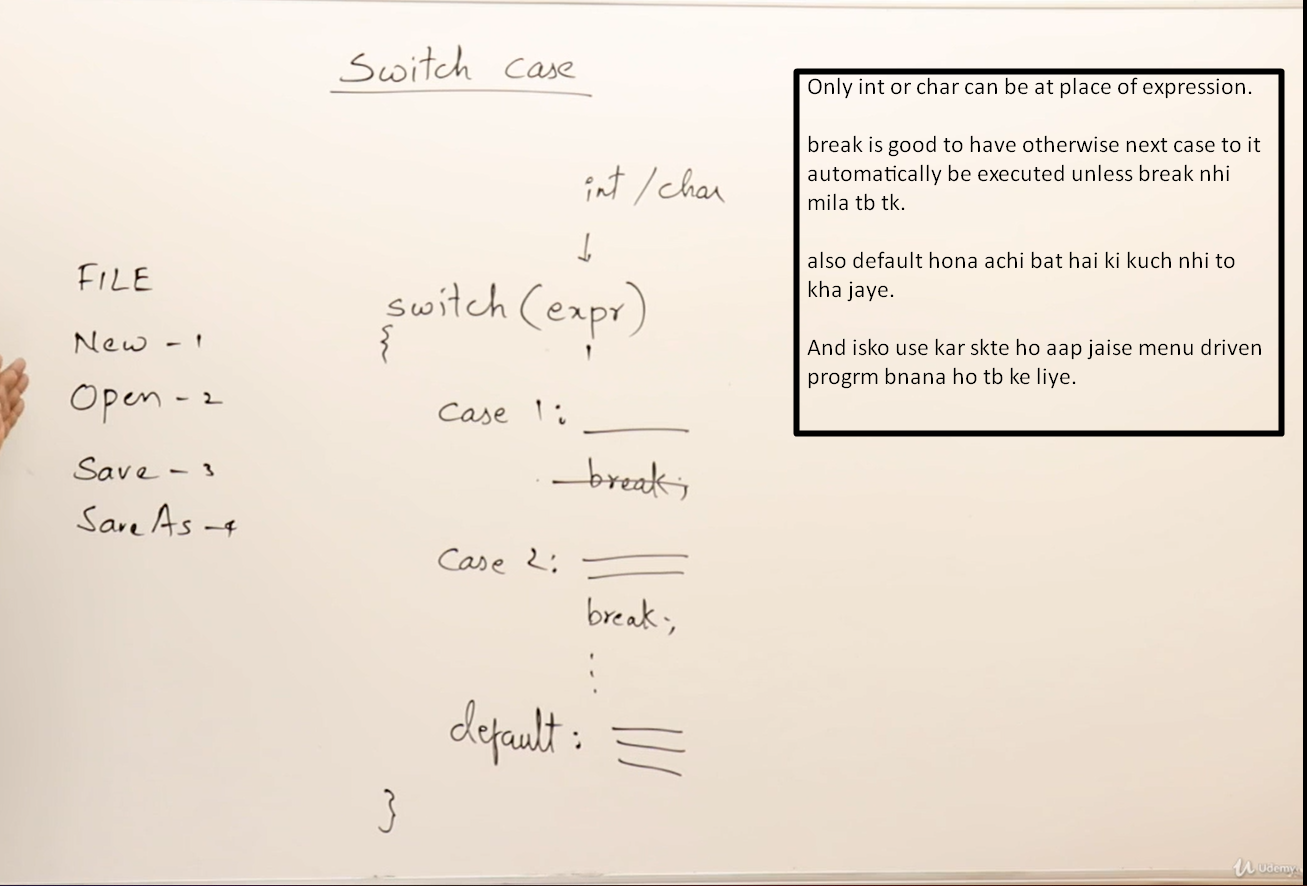 Switch case
int / char
↓
switch (expr)
{
1
case 1: 
break;
Case 2:
break;
default:
}
FILE
New - 1
Open - 2
Save - 3
Save As - 4
Only int or char can be at place of expression.
break is good to have otherwise next case to it
automatically be executed unless break nhi
mila tb tk.
also default hona achi bat hai ki kuch nhi to
kha jaye.
And isko use kar skte ho aap jaise menu driven
progrm bnana ho tb ke liye.
Udemy